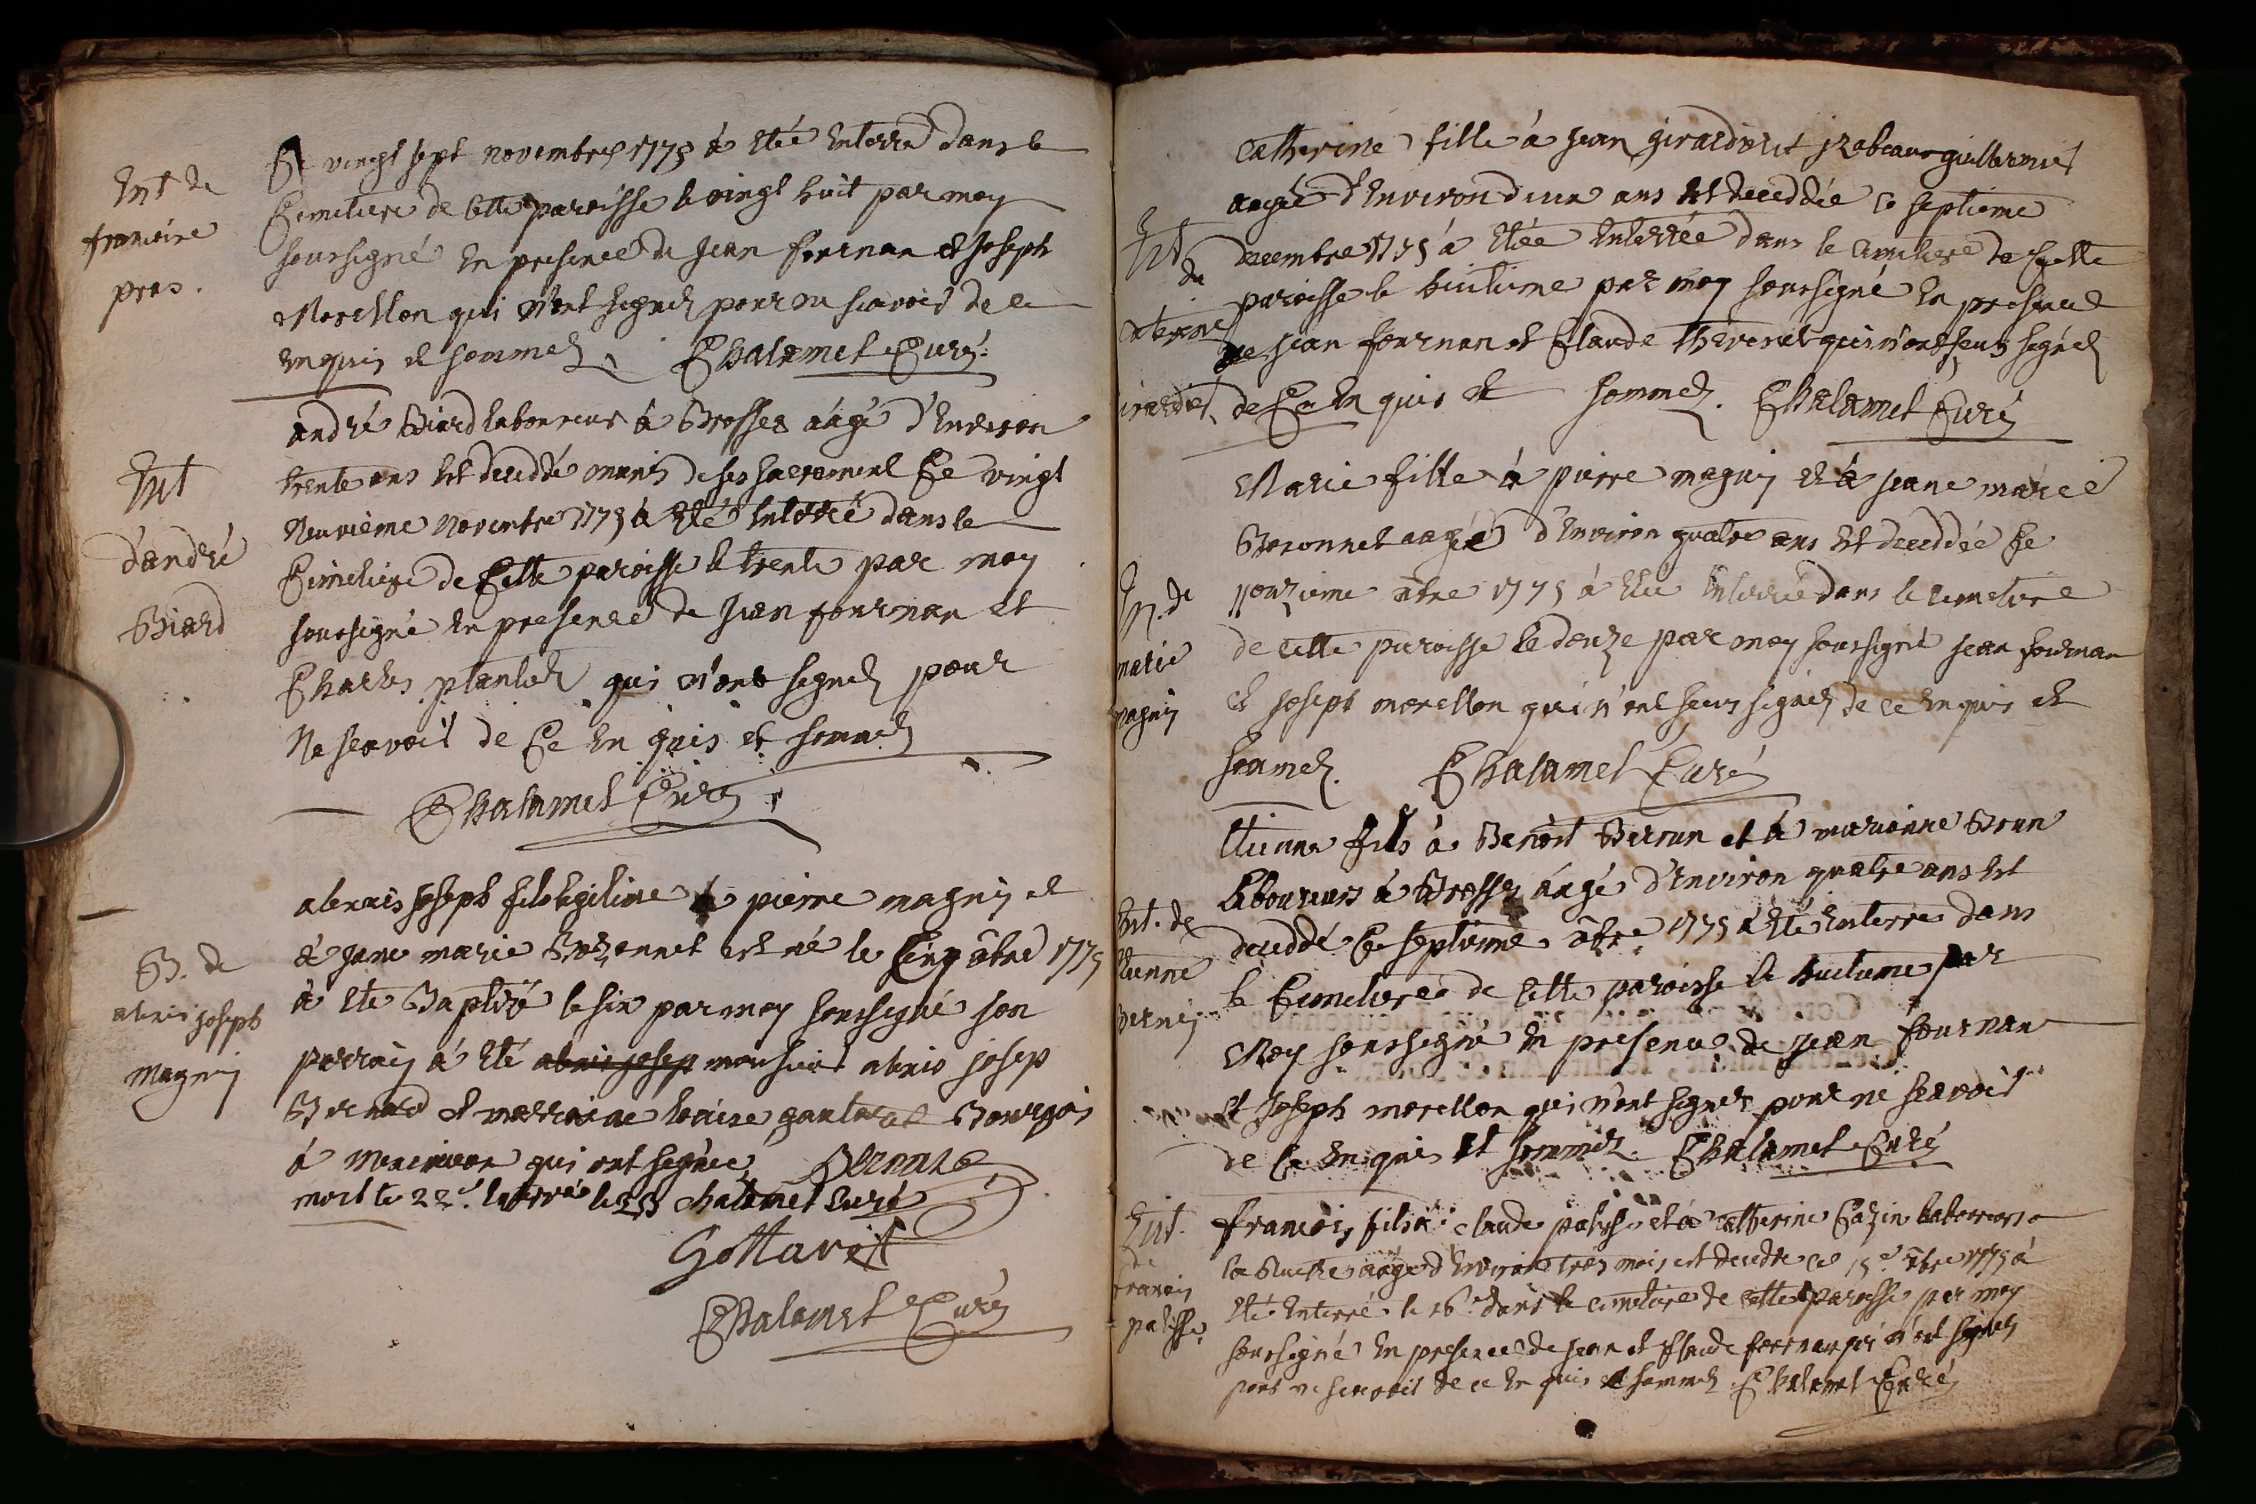 Ent de
francoise
pras.
Ce vingt sept novembre 1775 à etté enterré dans le
Cimetiere de cette paroisse le vingt huit par moy
soussigné en presence de jean fournan et joseph
Morellon qui n'ont signez pour ne scavoir de ce
enquis et sommez Chalamet Curé.
Ent
d'andré
Biard
andré Biard laboureur à Brosses áagé d'environ
trente ans est deceddé munis de ses sacrement Ce vingt
neuvième novembre 1775 à eté enterré dans le
Cimetiere de Cette paroisse le trente par moy
soussigné en presence de jean fournan et
Charles plantez qui n'ont signez pour
Ne scavoit de Ce en quis et sommez
Chalamet Curé
B. de
joseph
magnin
joseph fils legitime à pierre magnin et
à jane marie Bozonnet est né le Cinq xbre 1775
à eté Baptizé le six par moy soussigné son
parrain à eté monsieur josep
Bernard et marraine Bourgois
à qui ont signée Bernard
mort le 22e. enterré le 23 chalamet curé
Gottaret
Chalamet Curé
Ent
de
Catherine fille à jean girardet et guillermet
aagée d'environ deux ans est deceddée le septieme
decembre 1775 à etée enterrée dans le cimetiere de Cette
paroisse le huitieme par moy soussigné en presence
de jean fournan et Claude thevenet qui n'ont sceus signéz
de Ce en quis et sommez. Chalamet Curé
En. de
marie
magnin
Marie fille à pierre magnin et à jeane marie
Bozonnet aagée d'environ quatre ans est deceddée Ce
onzieme xbre 1775 à etée enterrée dans le cimetiere
de cette paroisse le douze par moy soussigné jean fournan
et joseph morellon qui n'ont sceus signéz de ce enquis et
sommez. Chalamet Curé
Ent. de
etienne
Etienne fils à Benoit et à marianne Brun
laboureurs à Brosses áagé d'environ quatre ans est
deceddé Ce septieme xbre 1775 à eté enterré dans
le Cimetiere de Cette paroisse le huitieme par
Moy soussigné en presence de jean fournan
et Joseph morellon qui n'ont signez pour ne scavoir
de Ce en quis et sommez. Chalamet Curé
Ent.
de
francois
palisse
francois fils à claude palisse et à catherine Cazin laboureurs a
áagé d'environ trois mois est deceddé ce 15e xbre 1775 à
eté enterré le 16e dans le cimetiere de cette paroisse par moy
soussigné en presence de jean et Claude fournan qui n'ont signez
pour ne scavoir de ce en quis et sommez Chalamet Curé